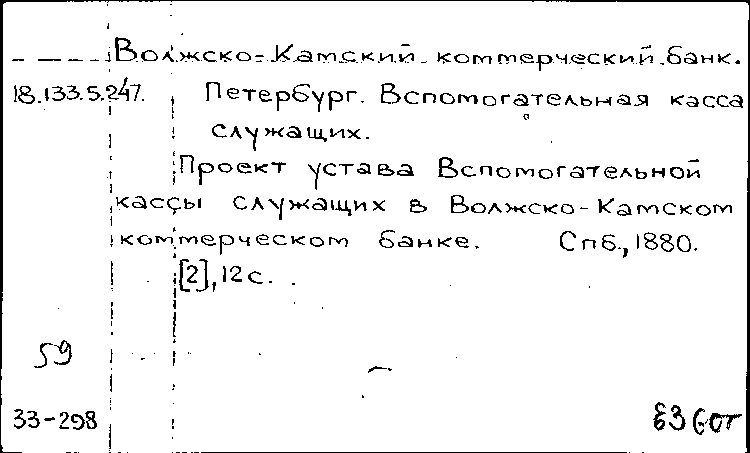 Волжско-Камский коммерческий банк.
18.133.5.247. Петербург. Вспомогательная касса
служащих.
Проект устава Вспомогательной
кассы служащих в Волжско-Камском
коммерческом банке. Спб., 1880.
[2], 12 с.
59
33-298